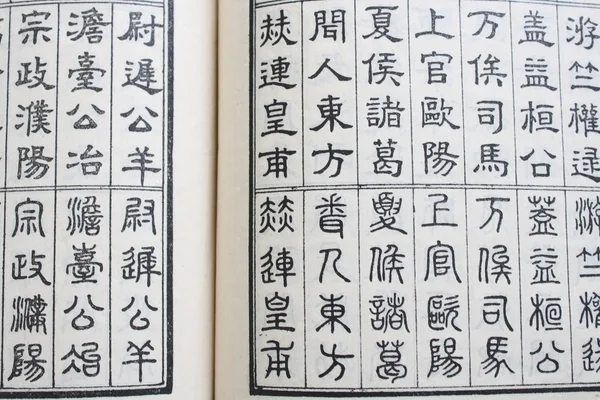 游竺權逯
盖益桓公
万俟司馬
上官歐陽
夏侯諸葛
聞人東方
赫連皇甫
尉遲公羊
澹臺公冶
宗政濮陽
游竺權逯
蓋益桓公
万俟司馬
上官歐陽
夏侯諸葛
聞人東方
赫連皇甫
尉遲公羊
澹臺公冶
宗政濮陽